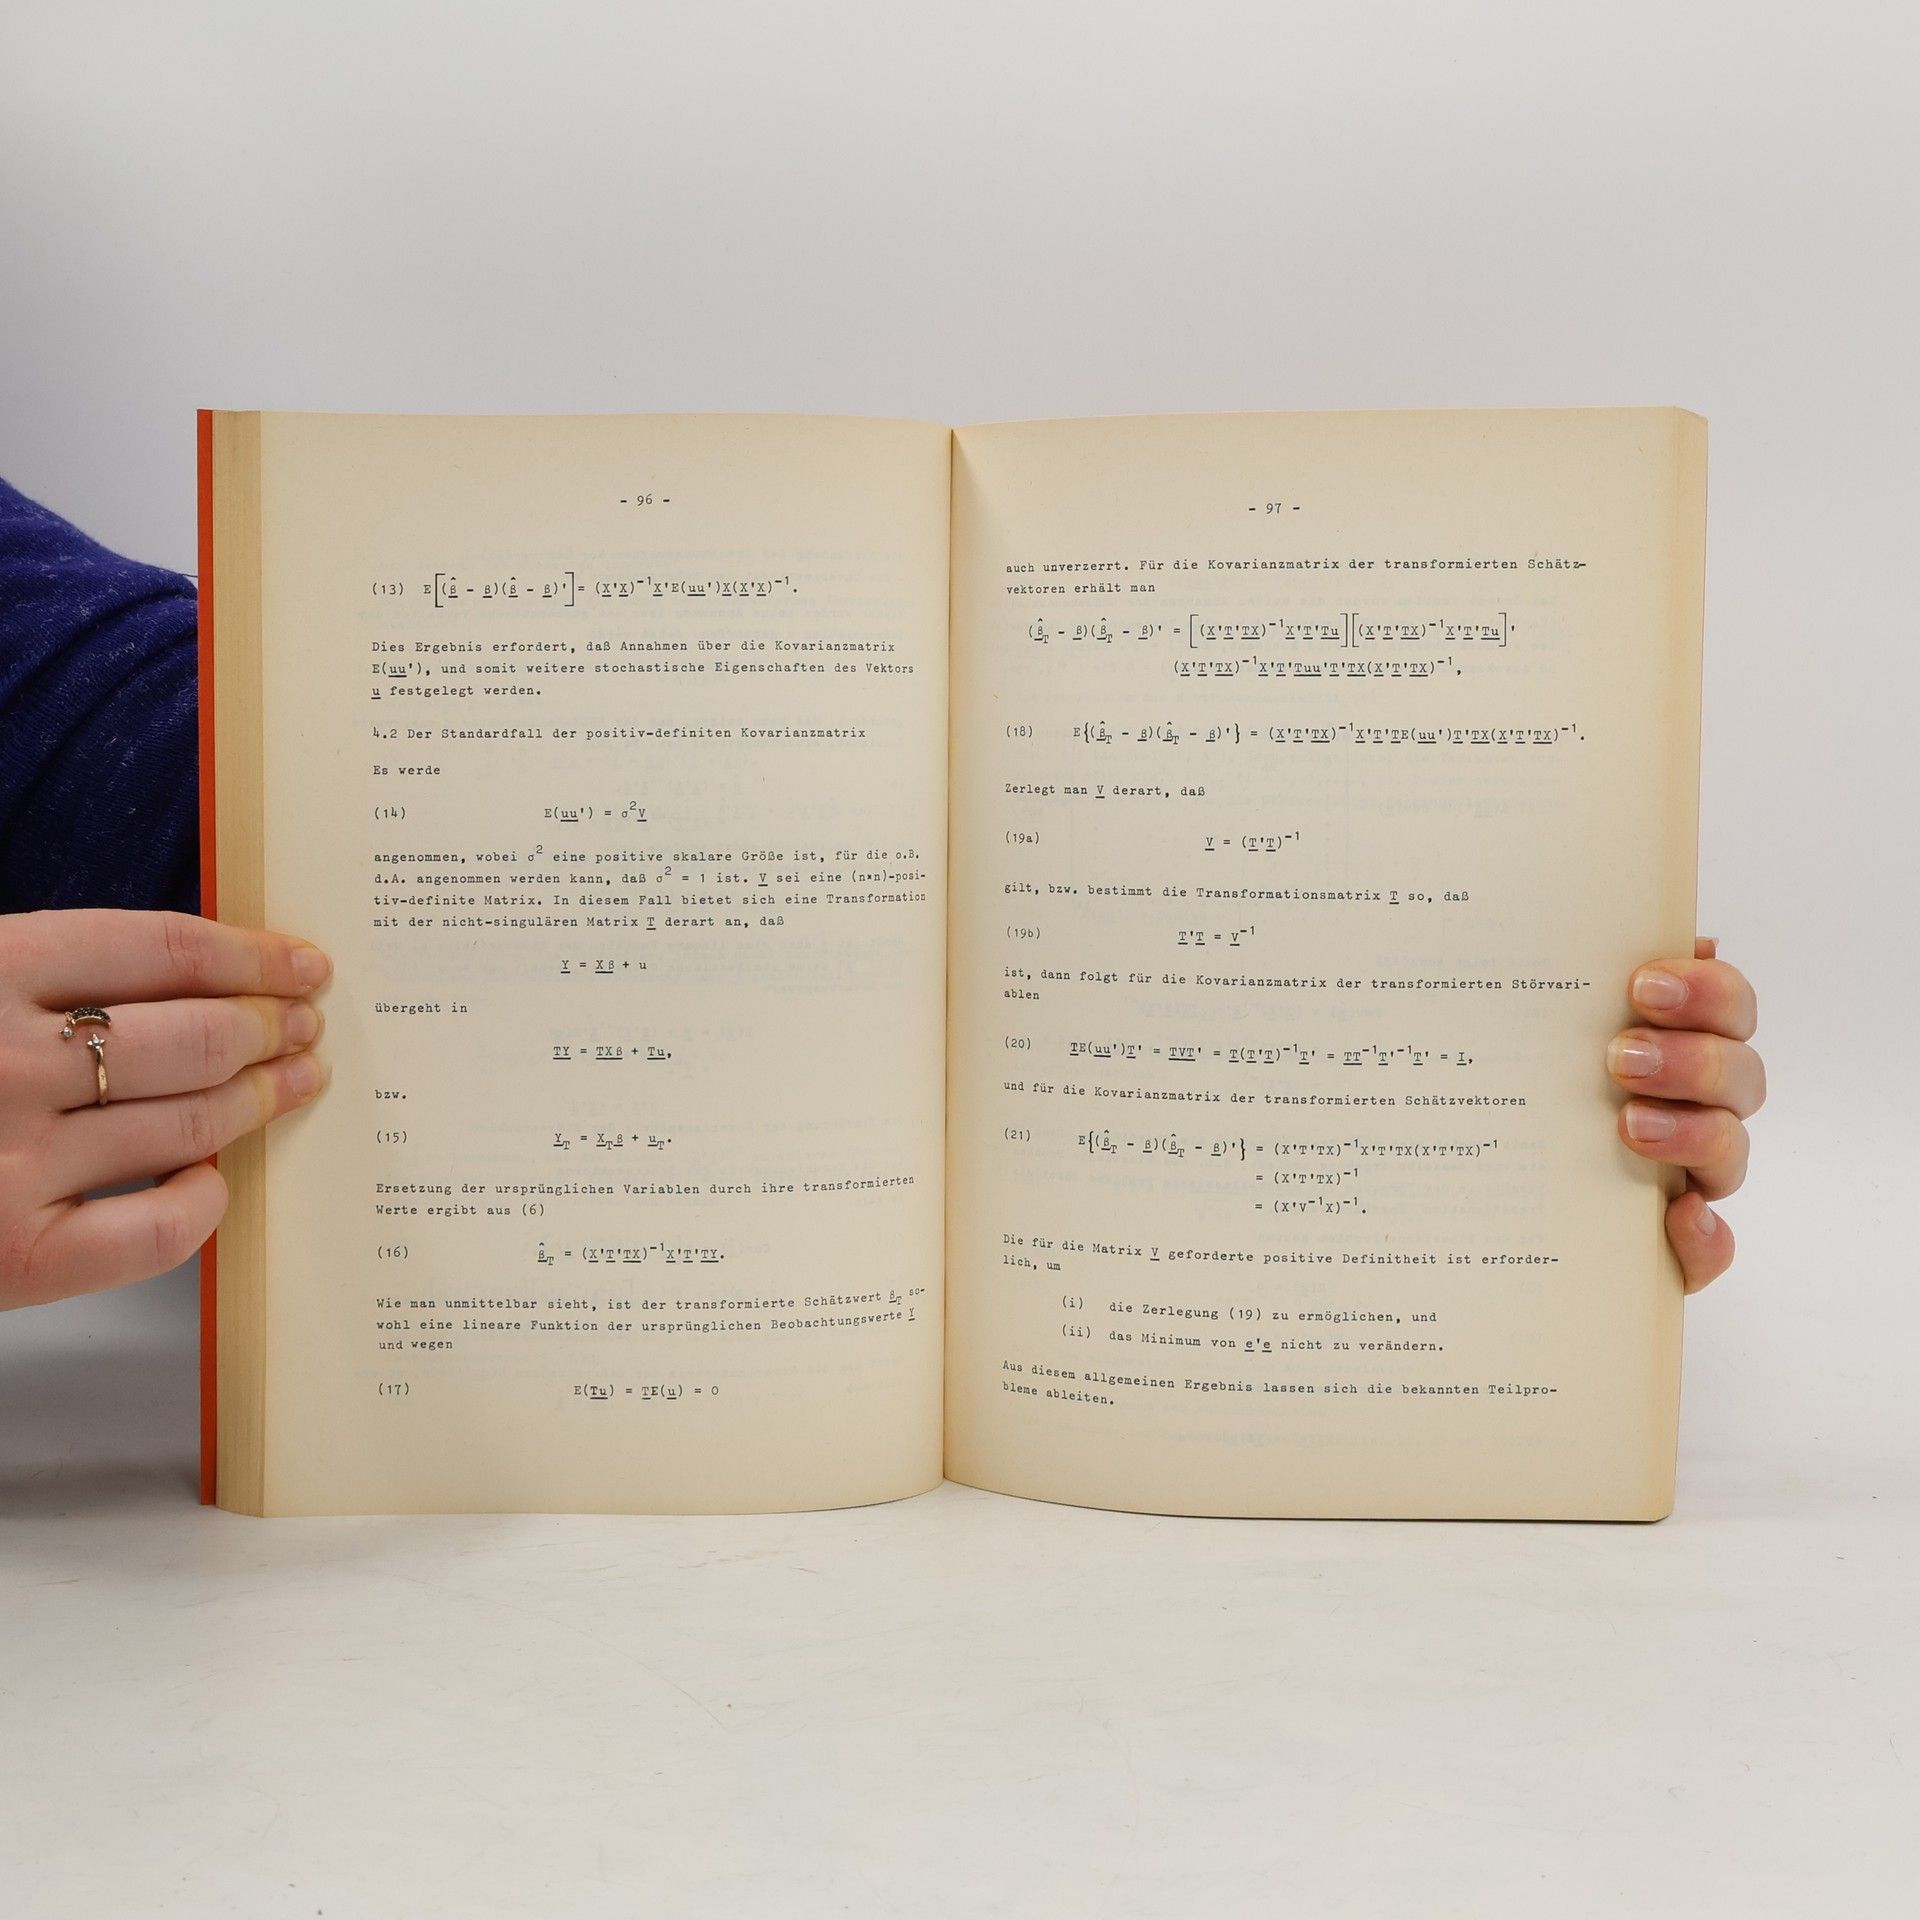 - 96 -
(13) E[(β̂ - β)(β̂ - β)'] = (X'X)⁻¹X'E(uu')X(X'X)⁻¹.
Dies Ergebnis erfordert, daß Annahmen über die Kovarianzmatrix
E(uu'), und somit weitere stochastische Eigenschaften des Vektors
u festgelegt werden.
4.2 Der Standardfall der positiv-definiten Kovarianzmatrix
Es werde
(14) E(uu') = σ²V
angenommen, wobei σ² eine positive skalare Größe ist, für die o.B.
d.A. angenommen werden kann, daß σ² = 1 ist. V sei eine (n*n)-posi-
tiv-definite Matrix. In diesem Fall bietet sich eine Transformation
mit der nicht-singulären Matrix T derart an, daß
Y = Xβ + u
übergeht in
TY = TXβ + Tu,
bzw.
(15) Y_T = X_Tβ + u_T.
Ersetzung der ursprünglichen Variablen durch ihre transformierten
Werte ergibt aus (6)
(16) β̂_T = (X'T'TX)⁻¹X'T'TY.
Wie man unmittelbar sieht, ist der transformierte Schätzwert β_T so-
wohl eine lineare Funktion der ursprünglichen Beobachtungswerte Y
und wegen
(17) E(Tu) = TE(u) = 0
- 97 -
auch unverzerrt. Für die Kovarianzmatrix der transformierten Schätz-
vektoren erhält man
(β̂_T - β)(β̂_T - β)' = [(X'T'TX)⁻¹X'T'Tu][(X'T'TX)⁻¹X'T'Tu]'
(X'T'TX)⁻¹X'T'Tuu'T'TX(X'T'TX)⁻¹,
(18) E{(β̂_T - β)(β̂_T - β)'} = (X'T'TX)⁻¹X'T'TE(uu')T'TX(X'T'TX)⁻¹.
Zerlegt man V derart, daß
(19a) V = (T'T)⁻¹
gilt, bzw. bestimmt die Transformationsmatrix T so, daß
(19b) T'T = V⁻¹
ist, dann folgt für die Kovarianzmatrix der transformierten Störvari-
ablen
(20) TE(uu')T' = TVT' = T(T'T)⁻¹T' = TT⁻¹T'⁻¹T' = I,
und für die Kovarianzmatrix der transformierten Schätzvektoren
(21) E{(β̂_T - β)(β̂_T - β)'} = (X'T'TX)⁻¹X'T'TX(X'T'TX)⁻¹
= (X'T'TX)⁻¹
= (X'V⁻¹X)⁻¹.
Die für die Matrix V geforderte positive Definitheit ist erforder-
lich, um
(i) die Zerlegung (19) zu ermöglichen, und
(ii) das Minimum von e'e nicht zu verändern.
Aus diesem allgemeinen Ergebnis lassen sich die bekannten Teilpro-
bleme ableiten.